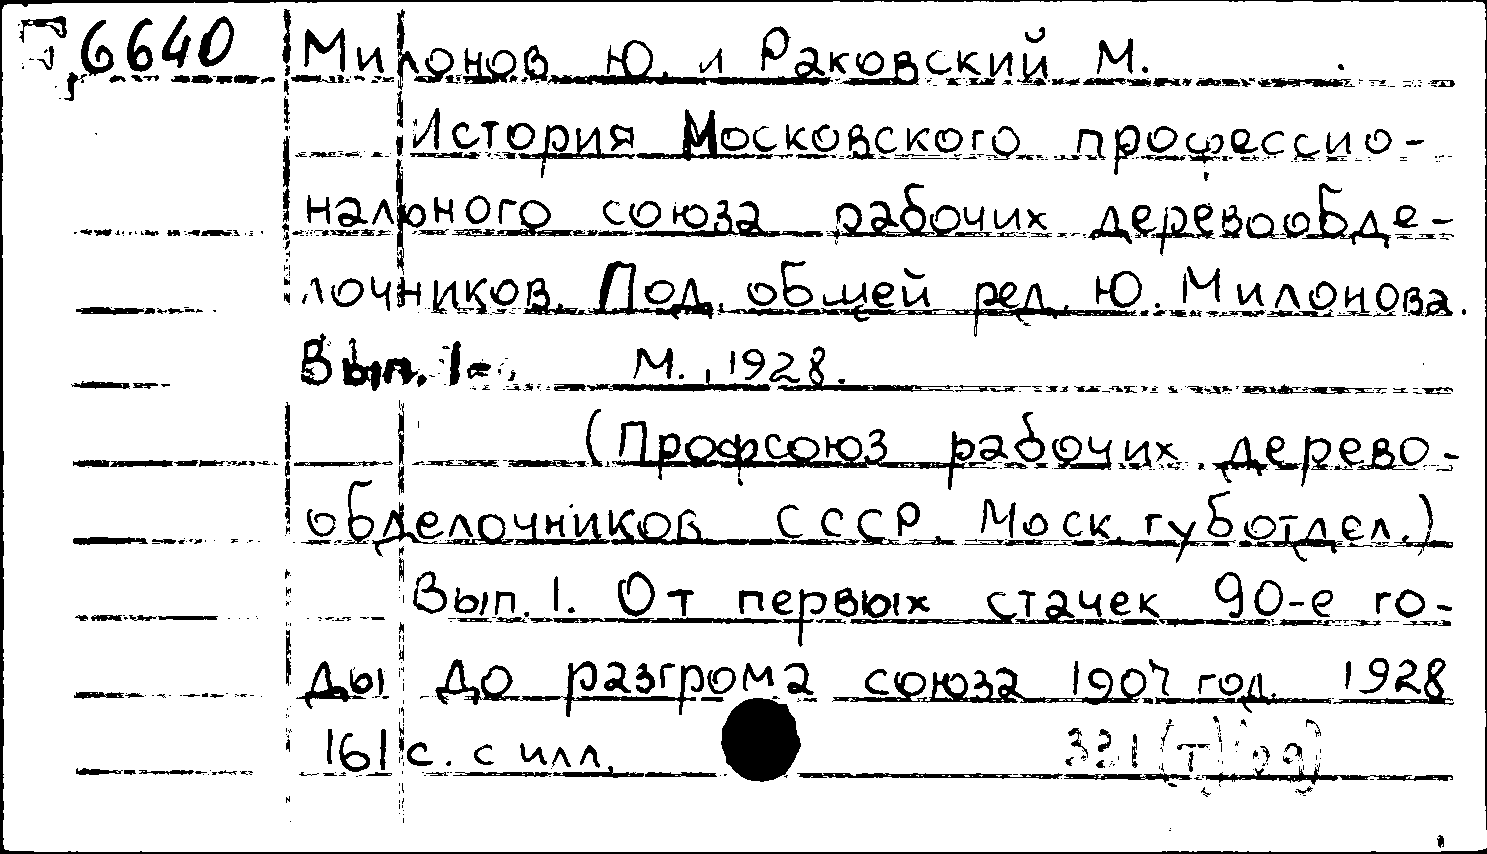 6640 Милонов Ю. и Раковский М.
История Московского профессио-
нального союза рабочих деревообде-
лочников. Под общей ред. Ю. Милонова.
Вып. 1- М., 1928.
(Профсоюз рабочих дерево-
обделочников СССР. Моск. губотдел.)
Вып. 1. От первых стачек 90-е го-
ды до разгрома союза 1907 год. 1928
161 с. с илл.